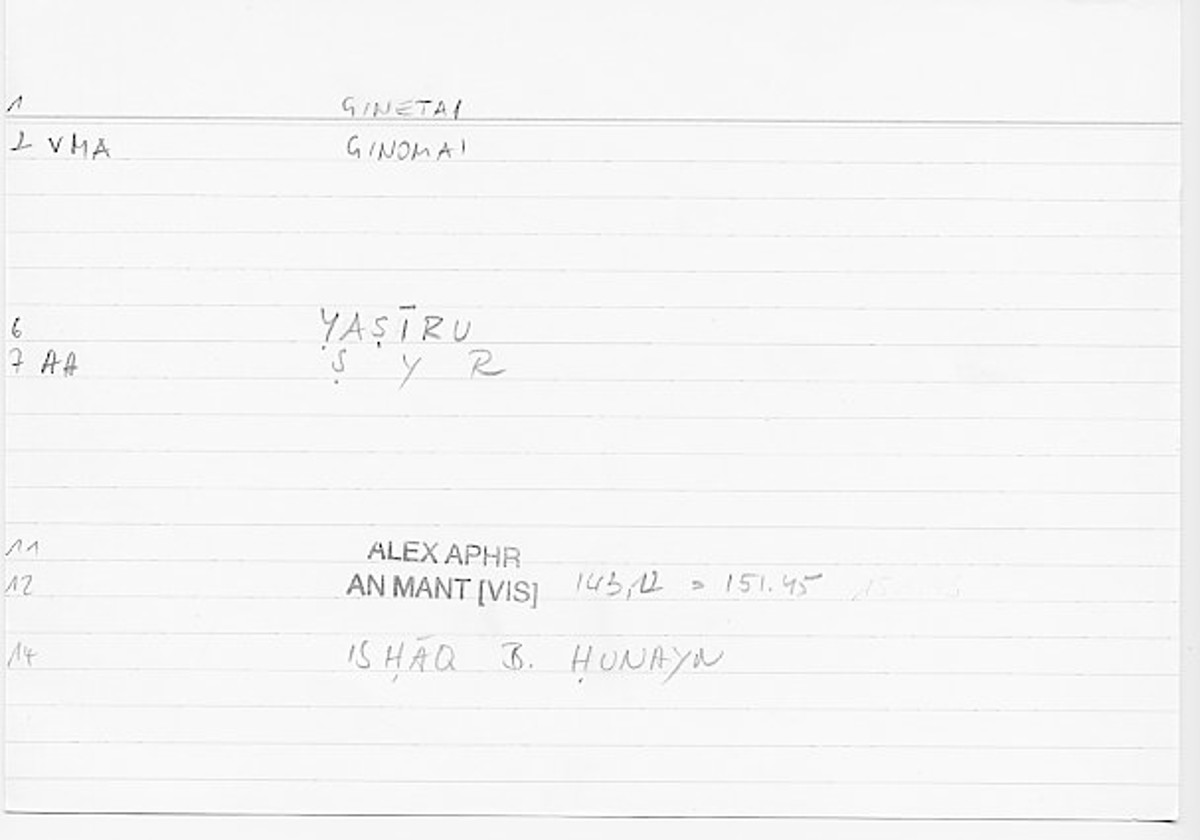 1 GINETAI
2 VMA GINOMAI
6 YAṢĪRU
7 AA Ṣ Y R
11 ALEX APHR
12 AN MANT [VIS] 143,12 = 151.45
14 ISḤĀQ B. ḤUNAYN